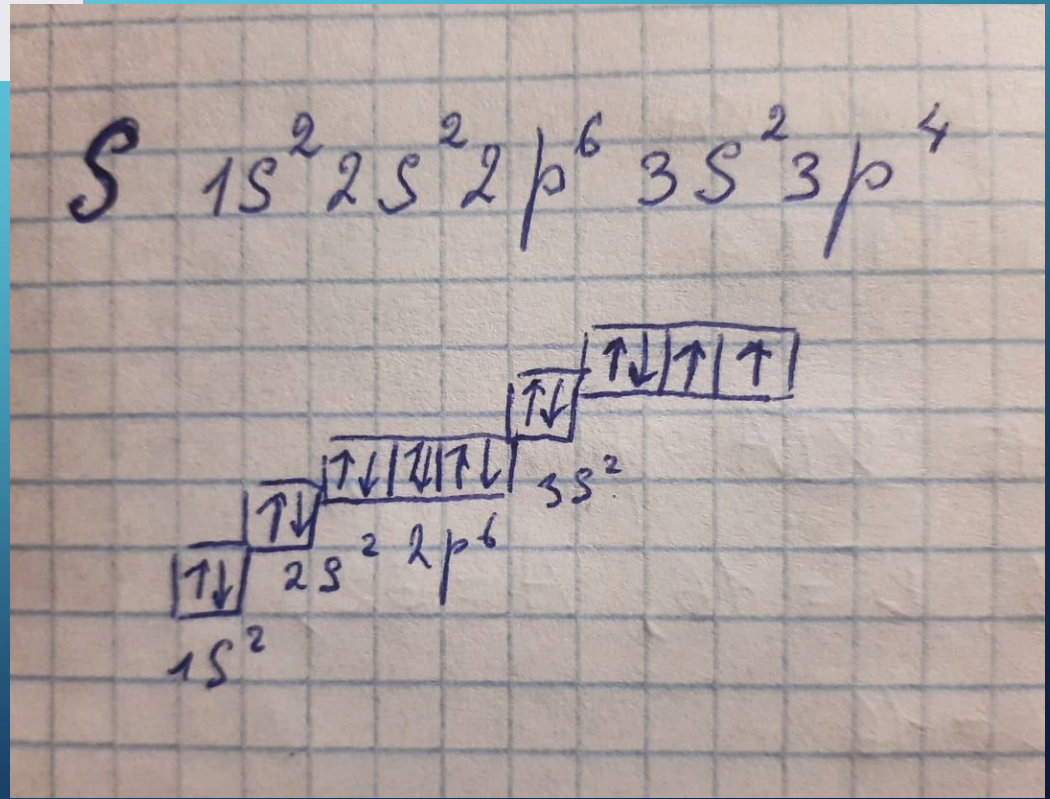 S 1s² 2s² 2p⁶ 3s² 3p⁴
↑↓ ↑ ↑
↑↓
3s²
↑↓ ↑↓ ↑↓
2p⁶
↑↓
2s²
↑↓
1s²